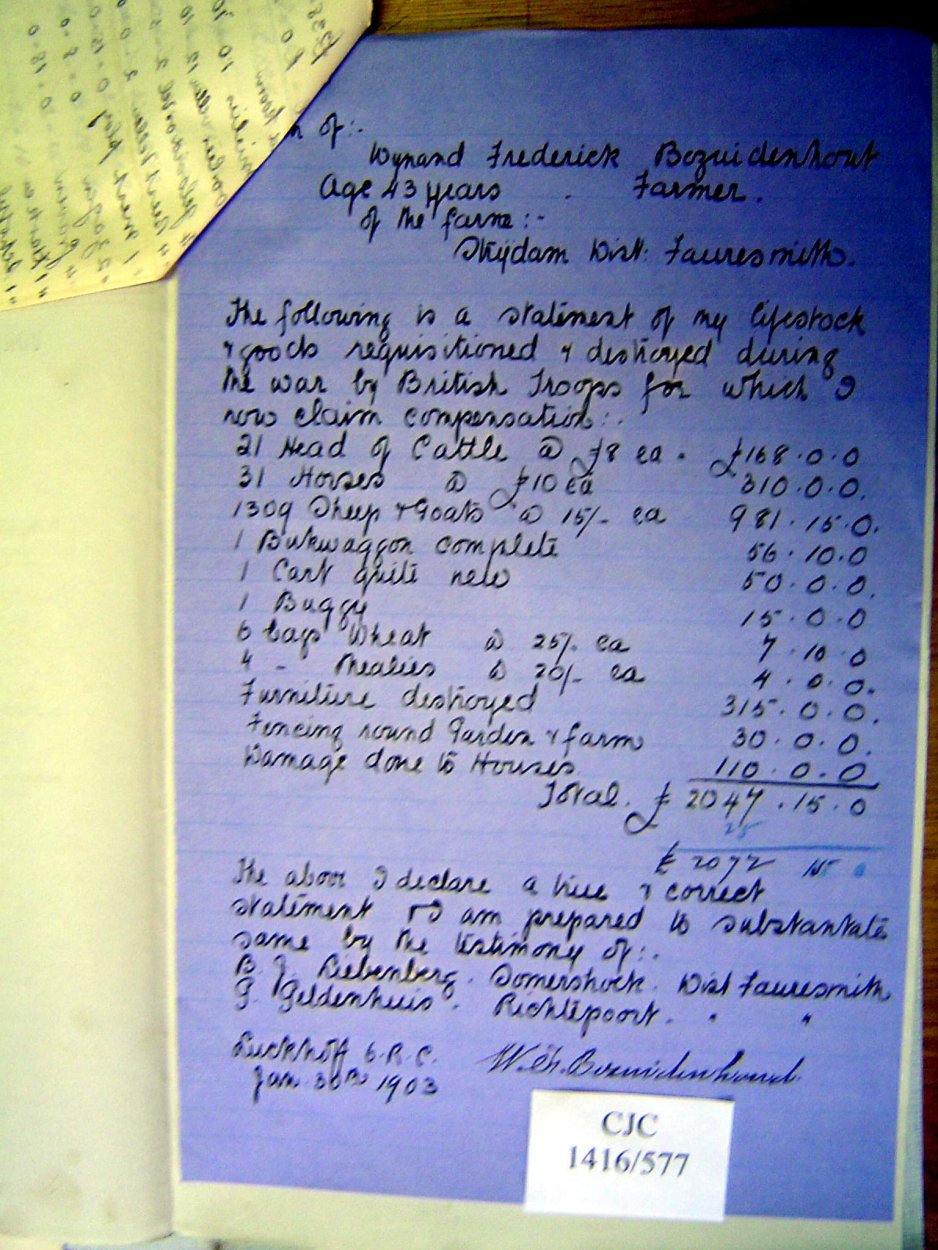 of:-
Wynand Frederick Bezuidenhout
Age 43 years . Farmer.
of the farm:-
Dist: Fauresmith.
The following is a statement of my lifestock
& goods requisitioned & destroyed during
the war by British Troops for which I
now claim compensation:-
21 Head of Cattle @ £8 ea . £168.0.0
31 Horses @ £10 ea 310.0.0.
1309 Sheep & Goats @ 15/- ea 981.15.0.
1 Bukwaggon complete 56.10.0
1 Cart quite new 50.0.0.
1 Buggy 15.0.0
6 bags Wheat @ 25/- ea 7.10.0
4 - Mealies @ 20/- ea 4.0.0.
Furniture destroyed 315.0.0.
Fencing round Garden & farm 30.0.0.
Damage done to Houses 110.0.0
Total. £2047.15.0
25
£2072 15 0
The above I declare a true & correct
statement & I am prepared to substantate
same by the testimony of:-
B. J. Liebenberg. Dist Fauresmith
G. Geldenhuis. " "
Luckhoff O.R.C.
Jan. 30th 1903
CJC
1416/577